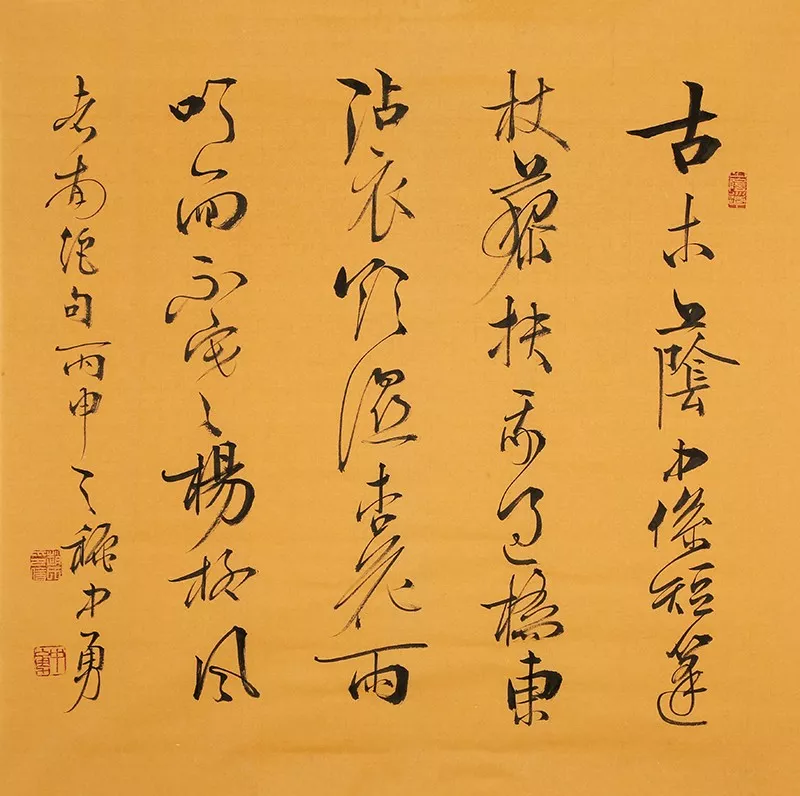 古木蔭中係短篷
杖藜扶我過橋東
沾衣欲濕杏花雨
吹面不寒楊柳風
志南絕句丙申之穐中勇